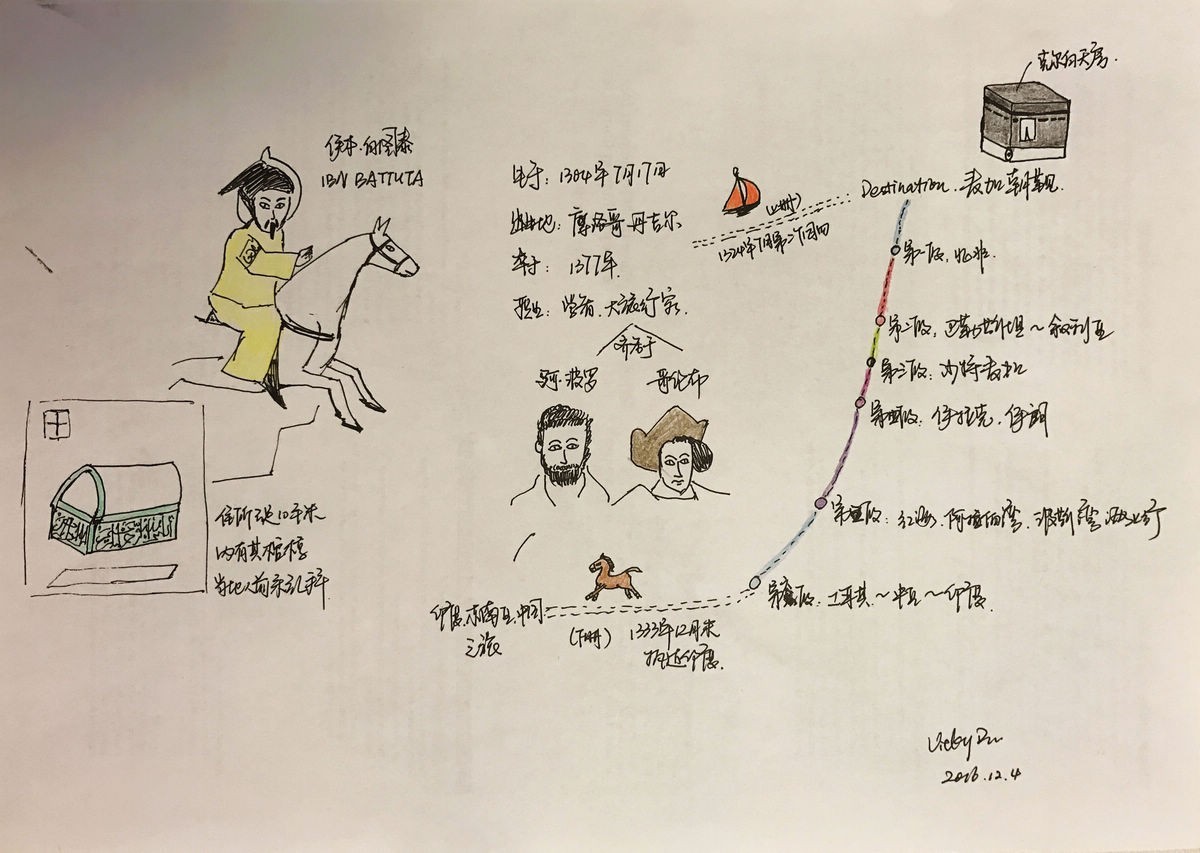 伊本·白图泰
IBN BATTUTA
生于：1304年7月17日
出生地：摩洛哥丹吉尔
卒于：1377年
职业：学者、大旅行家
齐名于
马可·波罗
哥伦布
克尔白天房
(上册)
1324年7月第二个月四
Destination 麦加朝觐
第一段：北非
第二段：巴勒斯坦～叙利亚
第三段：沙特麦加
第四段：伊拉克、伊朗
第五段：红海、阿拉伯湾、波斯湾海上行
第六段：土耳其～中亚～印度
(下册)
1333年12月末
抵达印度
印度、东南亚、中国
之旅
住所不足10平米
内有其棺椁
当地人前来礼拜
2016.12.4